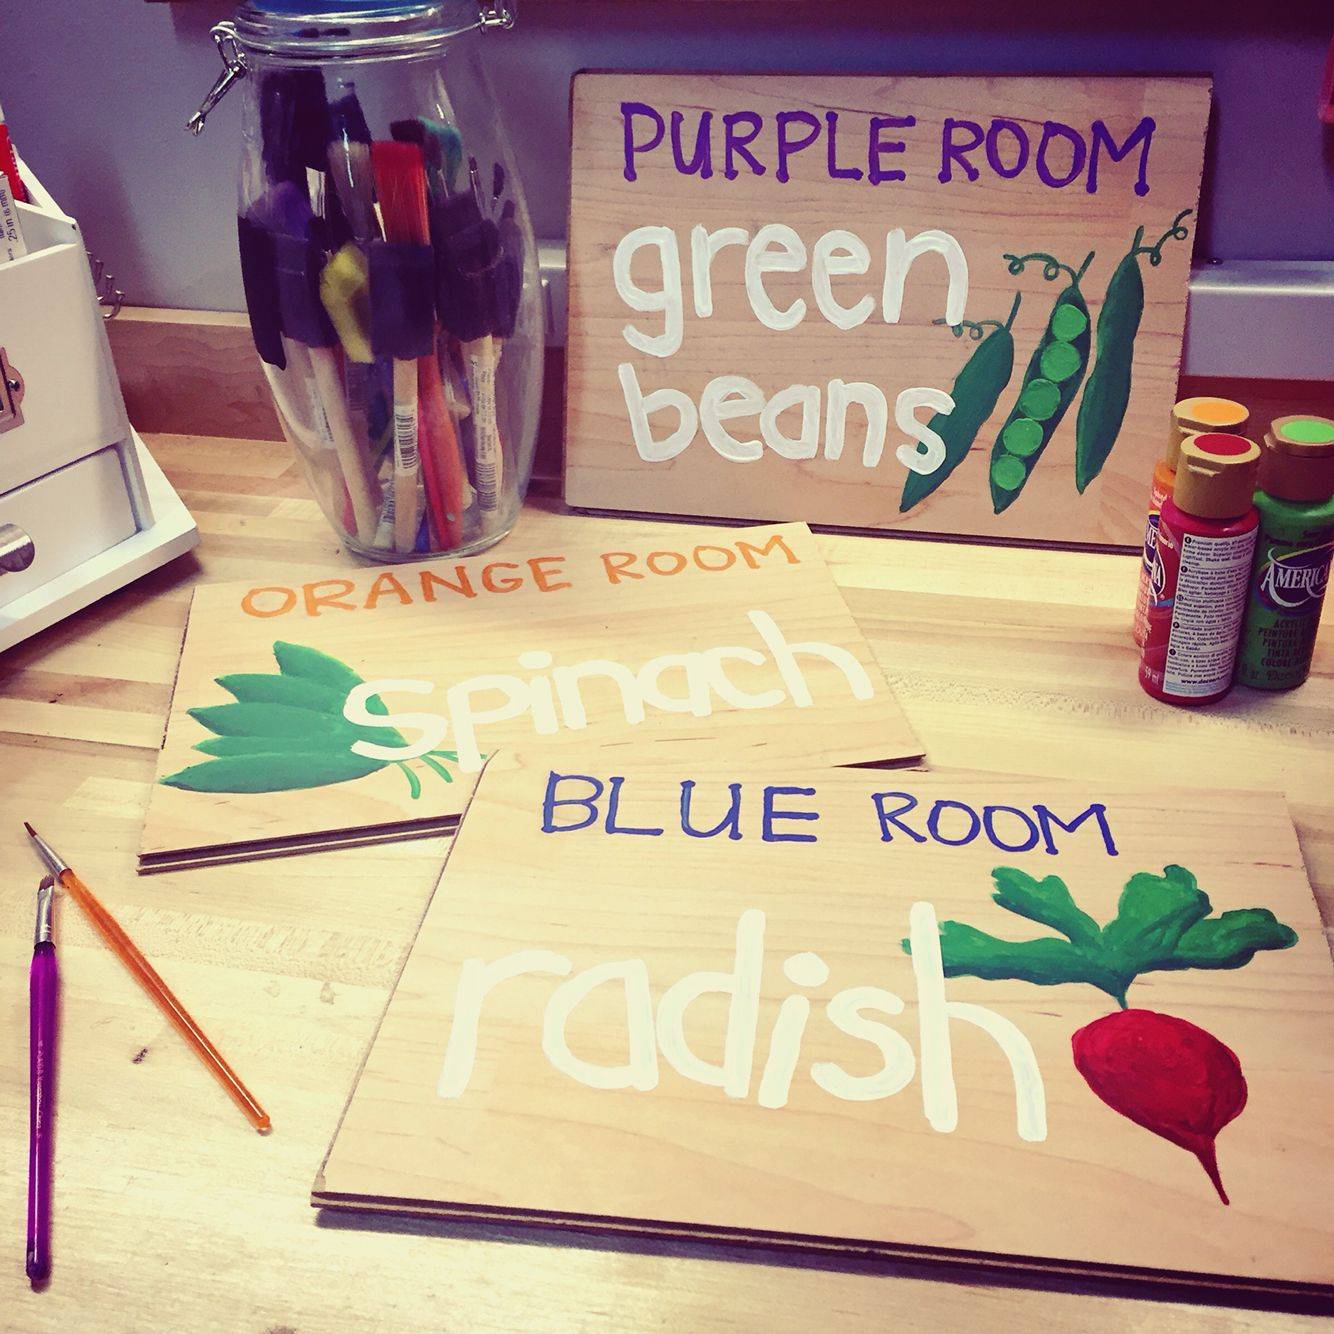 PURPLE ROOM
green
beans
ORANGE ROOM
Spinach
BLUE ROOM
radish
AMERICA